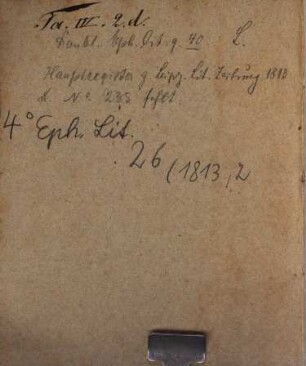 Ta. III. 2. d.
Eph. Lit. q. 40 L.
Hauptregister q Leipz. Lit. Zeitung 1813
d. No 285 fehlt.
4° Eph. Lit.
26 (1813, 2